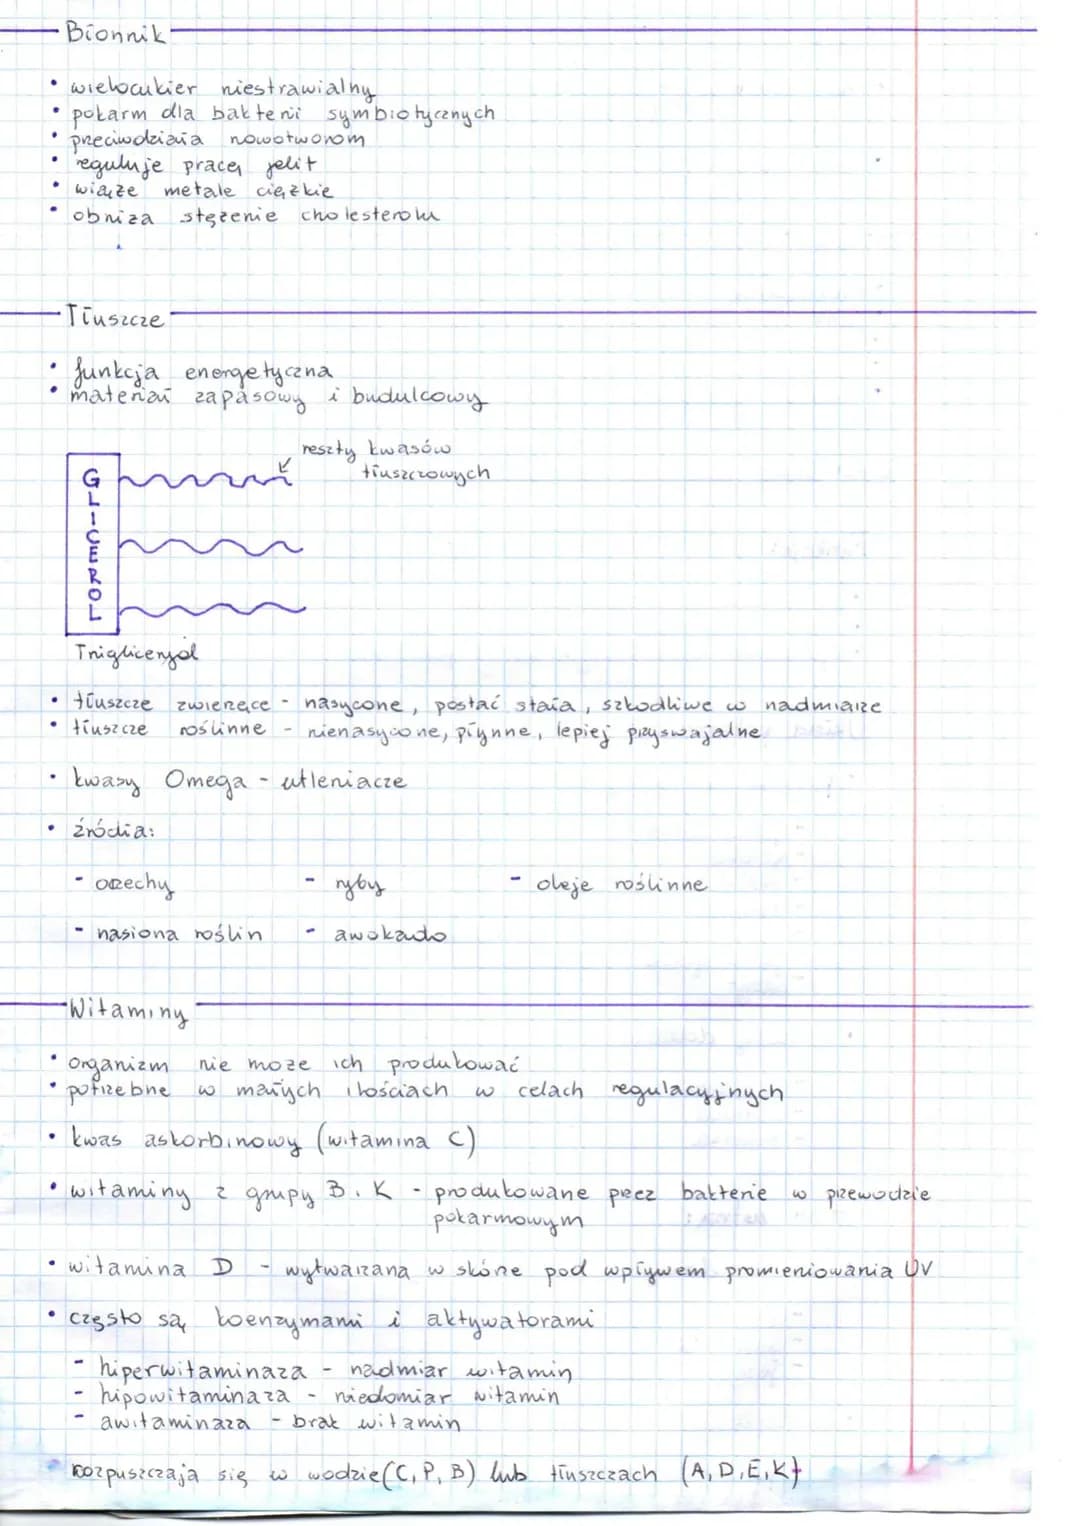 Błonnik
• wielocukier niestrawialny
• pokarm dla bakterii symbiotycznych
• przeciwdziała nowotworom
• reguluje pracę jelit
• wiąże metale ciężkie
• obniża stężenie cholesterolu
Tłuszcze
• funkcja energetyczna
• materiał zapasowy i budulcowy
reszty kwasów
tłuszczowych
GLICEROL
Triglicerydol
• tłuszcze zwierzęce - nasycone, postać stała, szkodliwe w nadmiarze
• tłuszcze roślinne - nienasycone, płynne, lepiej przyswajalne
• kwasy Omega - utleniacze
• źródła:
- orzechy - ryby - oleje roślinne
- nasiona roślin - awokado
Witaminy
• organizm nie może ich produkować
• potrzebne w małych ilościach w celach regulacyjnych
• kwas askorbinowy (witamina C)
• witaminy z grupy B i K - produkowane przez bakterie w przewodzie
pokarmowym
• witamina D - wytwarzana w skórze pod wpływem promieniowania UV
• często są koenzymami i aktywatorami
- hiperwitaminaza - nadmiar witamin
- hipowitaminaza - niedomiar witamin
- awitaminaza - brak witamin
• rozpuszczają się w wodzie (C, P, B) lub tłuszczach (A, D, E, K)